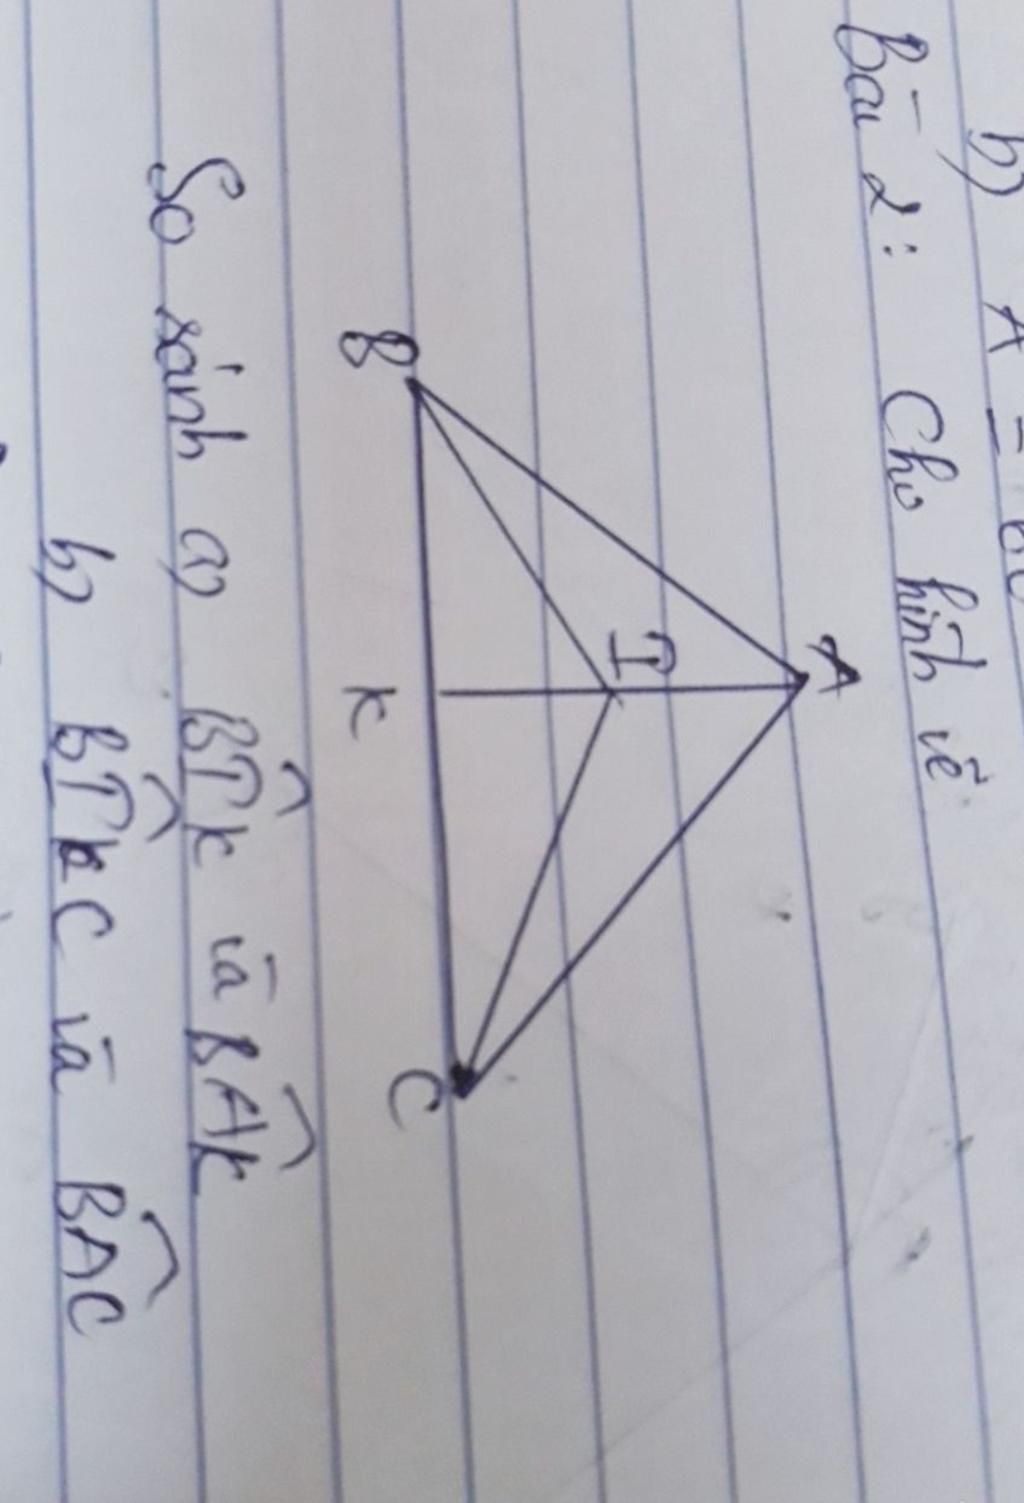 b) A =
Bài 2: Cho hình vẽ
A
I
B
K
C
So sánh a) BIK̂ và BAK̂
b) BIĈ và BAĈ